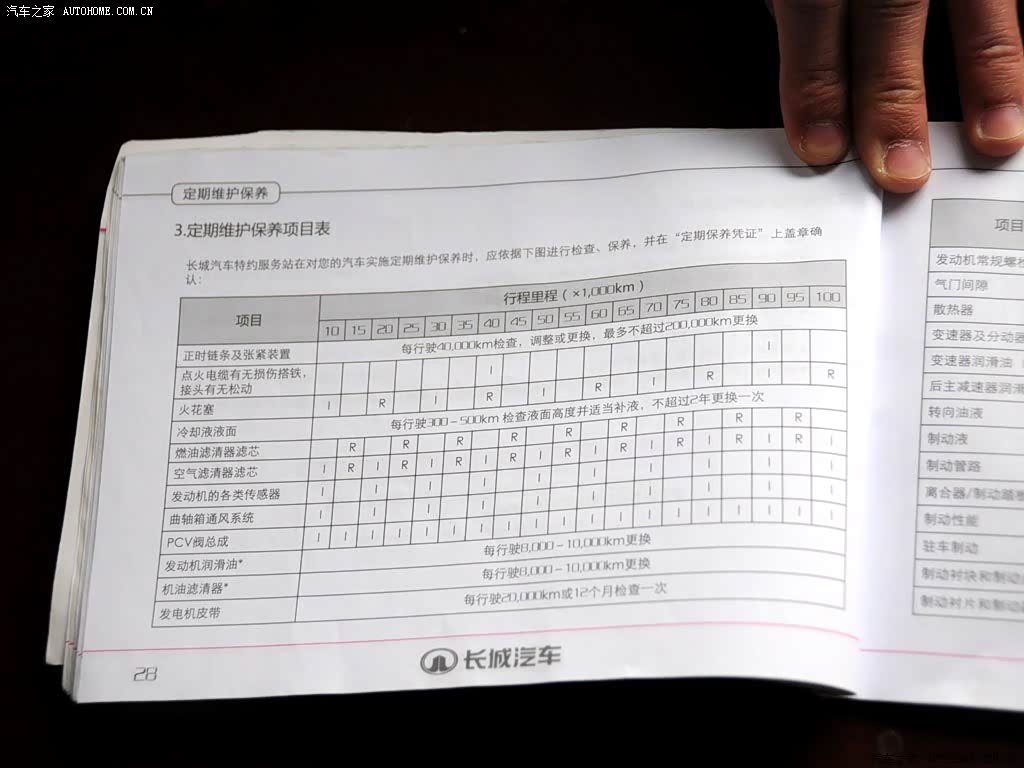 汽车之家 AUTOHOME.COM.CN
定期维护保养
3.定期维护保养项目表
长城汽车特约服务站在对您的汽车实施定期维护保养时，应依据下图进行检查、保养，并在“定期保养凭证”上盖章确
认：
项目 行程里程（×1,000km）
10 15 20 25 30 35 40 45 50 55 60 65 70 75 80 85 90 95 100
正时链条及张紧装置 每行驶40,000km检查，调整或更换，最多不超过200,000km更换
点火电缆有无损伤搭铁，
接头有无松动 I I
火花塞 I R I R I R I R I R
冷却液液面 每行驶300－500km 检查液面高度并适当补液，不超过2年更换一次
燃油滤清器滤芯 R R R R R R R R R
空气滤清器滤芯 I R I R I R I R I R I R I R I R I R I
发动机的各类传感器 I I I I I I I
曲轴箱通风系统 I I I I I I I
PCV阀总成 I I I I I I I I I I I I I I I I I I I
发动机润滑油* 每行驶8,000－10,000km更换
机油滤清器* 每行驶8,000－10,000km更换
发电机皮带 每行驶20,000km或12个月检查一次
28
长城汽车
项目
发动机常规螺栓
气门间隙
散热器
变速器及分动器
变速器润滑油
后主减速器润滑
转向油液
制动液
制动管路
离合器/制动踏板
制动性能
驻车制动
制动衬块和制动
制动衬片和制动